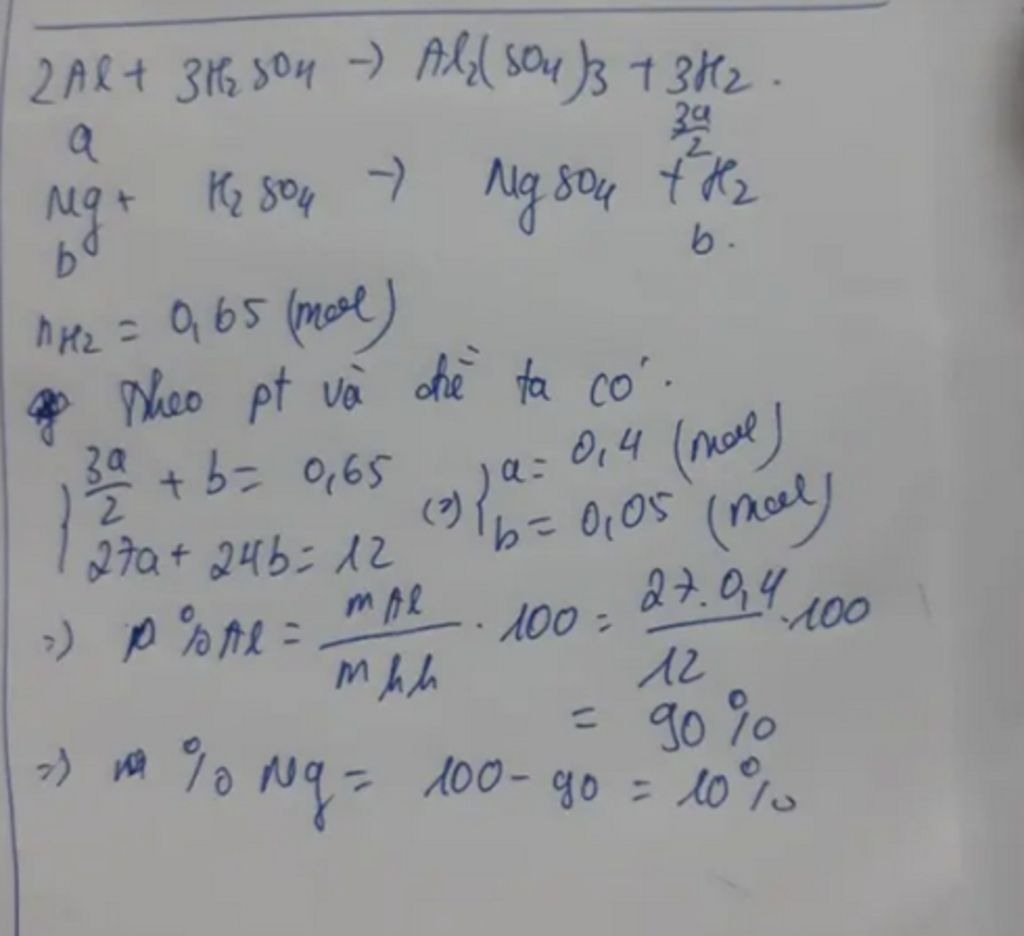 2Al + 3H2SO4 → Al2(SO4)3 + 3H2.
a 3a/2
Mg + H2SO4 → MgSO4 + H2
b b.
nH2 = 0,65 (mol)
Theo pt và đề ta có.
{ 3a/2 + b = 0,65 (=) { a = 0,4 (mol)
27a + 24b = 12 b = 0,05 (mol)
=) % Al = mAl/mhh . 100 = 27.0,4/12 .100
= 90%
=) % Mg = 100 - 90 = 10%